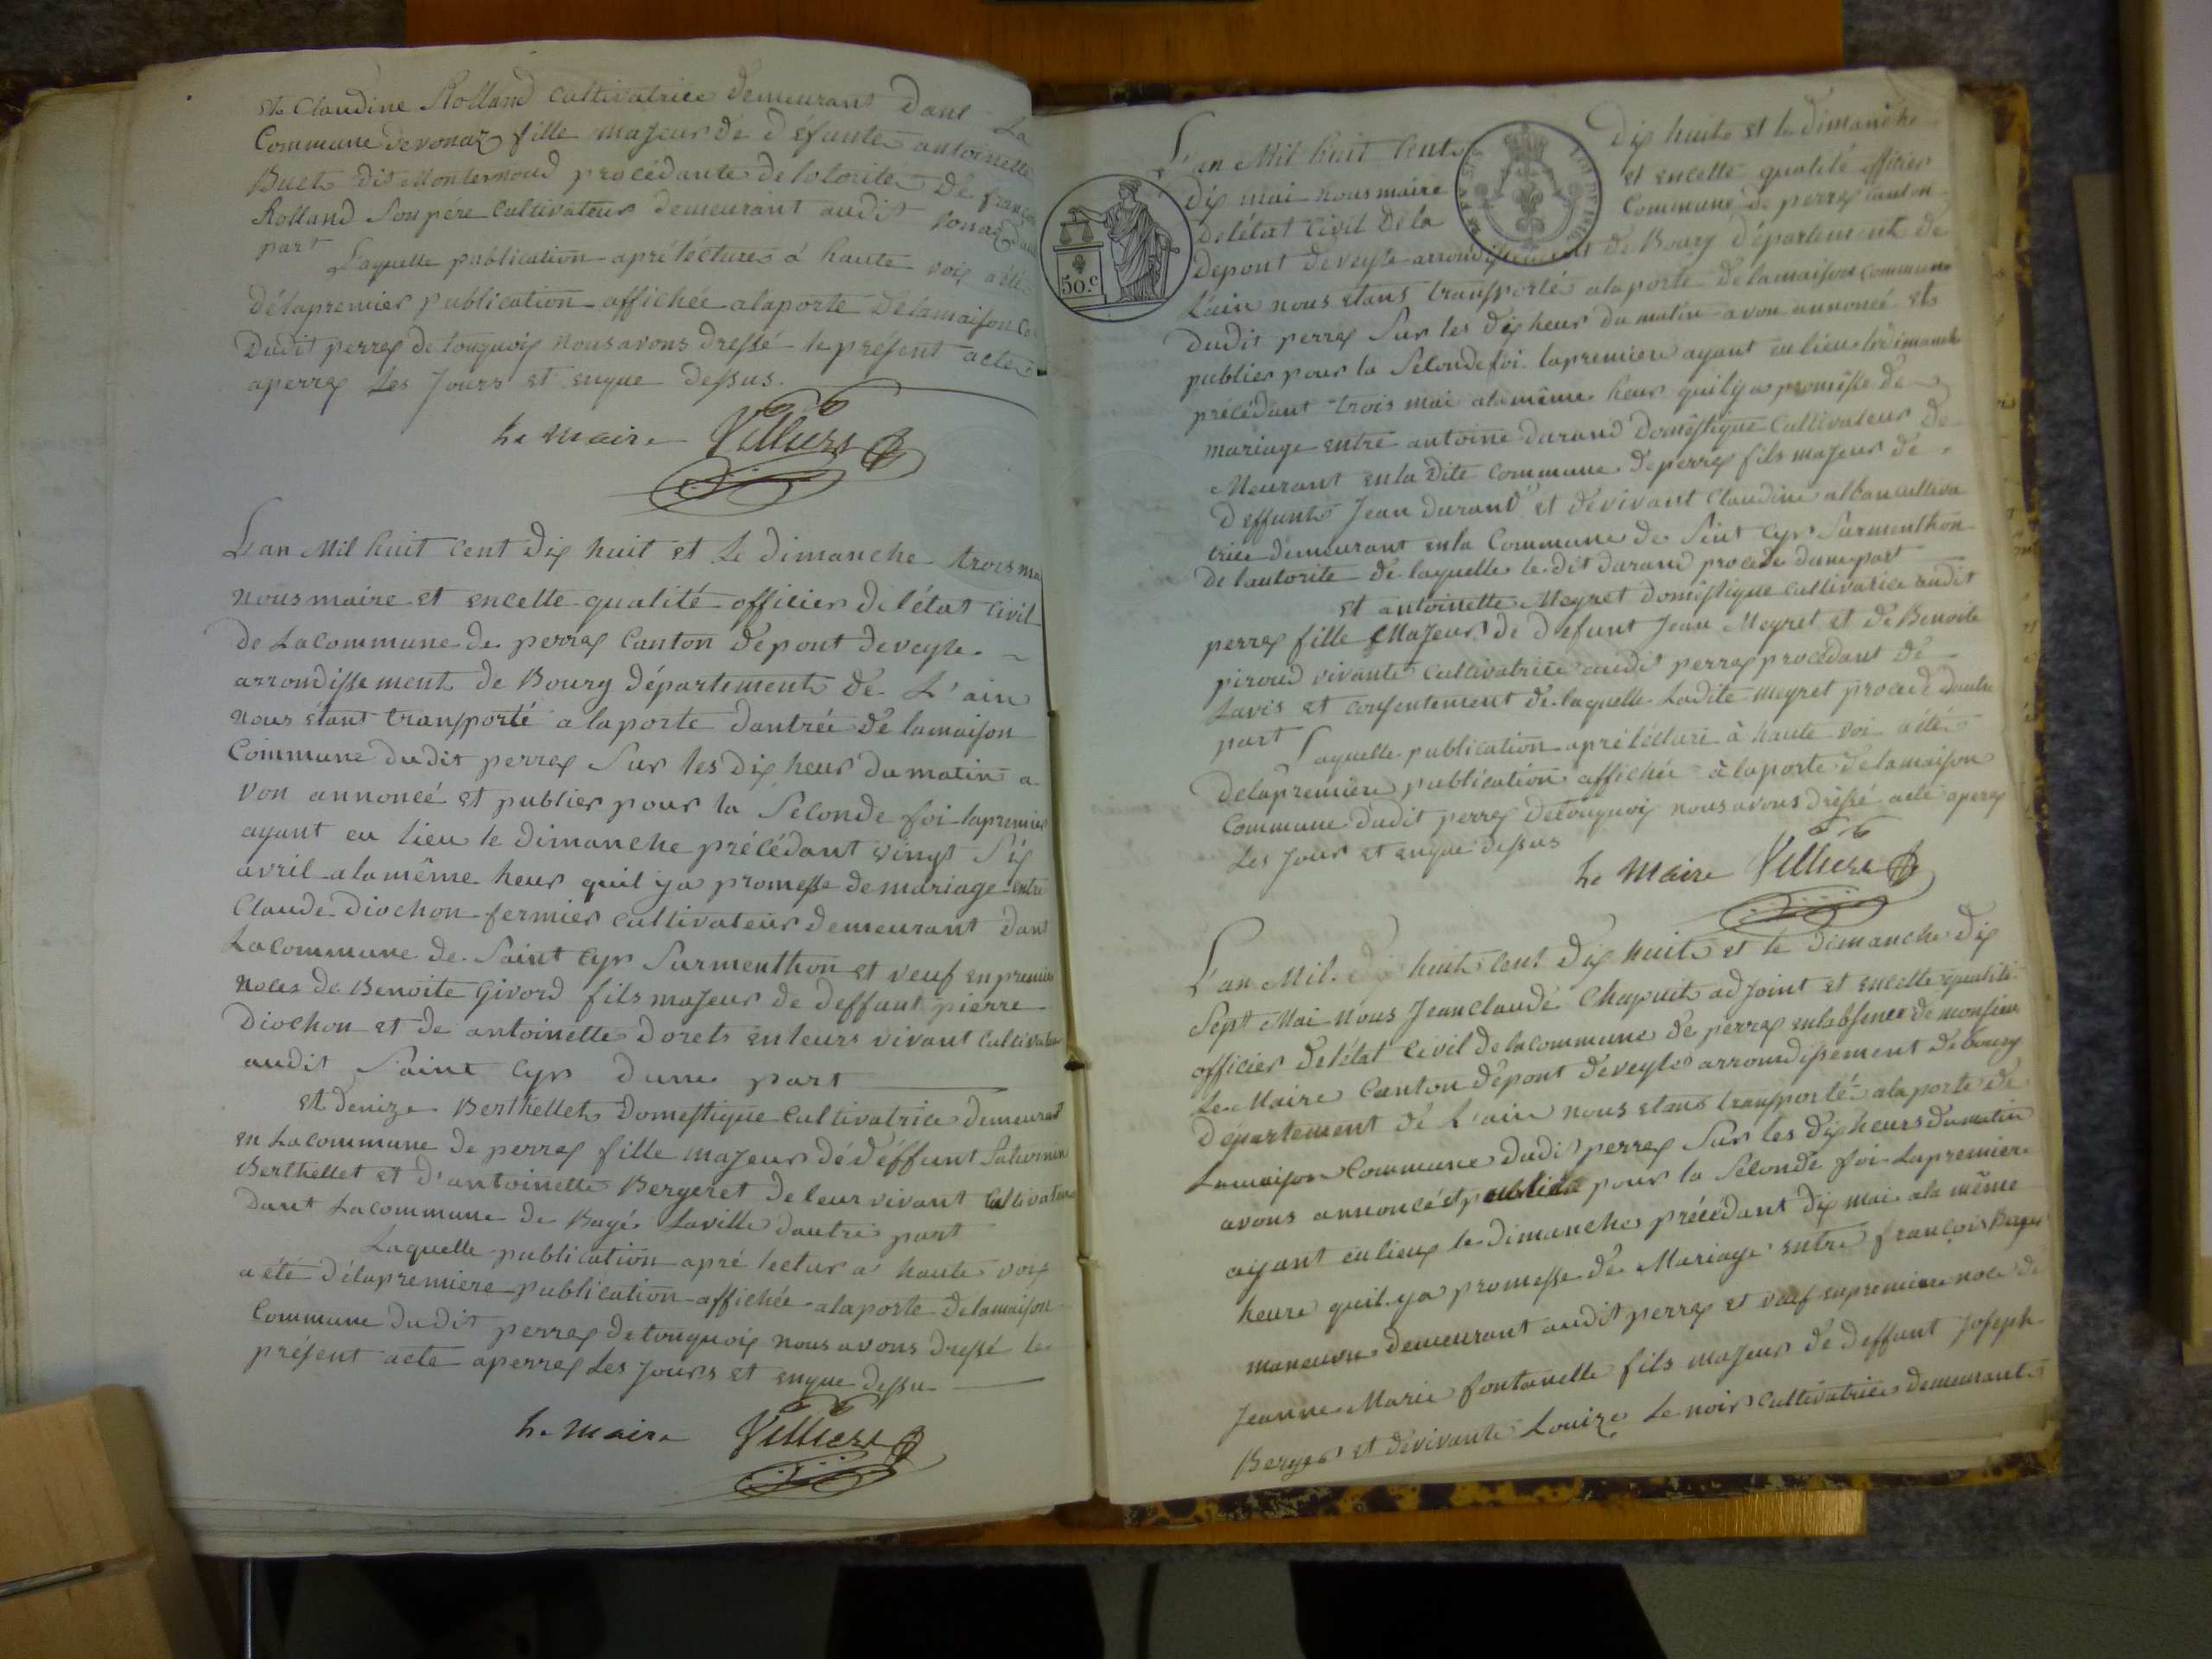 et Claudine Rolland cultivatrice demeurant dant La
Commune devonaz fille majeur dé défunte antoinette
Buet dit Monternoud procédante de lotorite De françoi
Rolland Son pére Cultivateur demeurant audit vonaz dautre
part Laquelle publication apré lécture à haute voix a été
délapremier publication affichée alaporte delamaison Co
Dudit perrex de touquoix nous avons dressé le present acte
aperrex Les Jours et enque dessus.
Le maire Villiers
L'an Mil huit Cent Dix huit et Le dimanche trois mai
nous maire et encette qualité officier de létat Civil
de La commune de perrex Canton dépont deveyle
arrondissement de Bourg département de L'ain
nous étant transporté a laporte dantrée de lamaison
Commune dudit perrex Sur les dix heur du matin a
von annoncé et publier pour la Seconde foi lapremier
ayant eu lieu le dimanche précédant vingt Six
avril alamême heur quil ya promesse de mariage entre
Claude Diochon fermier cultivateur demeurant dant
La commune de Saint Cyr Surmenthon et veuf en premier
noces de Benoite Givord fils majeur de deffunt pierre
Diochon et de antoinette Dorets enleurs vivant Cultivateur
audit Saint Cyr dune part
et denize Berthellet Domestique Cultivatrice demeurant
en La commune de perrex fille majeur dé déffunt Saturnin
Berthellet et d'antoinette Bergeret de leur vivant Cultivateur
Dant La commune de Bagé Laville dautre part
Laquelle publication apré lectur a haute voix
a été délapremiere publication affichée alaporte delamaison
Commune dudit perrex de touquoix nous avons dressé le
présent acte aperrex Les Jours et enque dessu
Le maire Villiers
L'an Mil huit Cent Dix huit et le dimanche
dix mai nous maire et encette qualité officier
de létat Civil de la Commune de perrex canton
depont de veyle arrondissement de Bourg département de
L'ain nous étans transporté alaporte de lamaison commune
dudit perrex Sur les dix heur du matin avon annoncé et
publier pour la Seconde foi lapremiere ayant eu lieu ledimanche
précédant trois mai alamême heur quil ya promêsse de
mariage entre antoine durand doméstique Cultivateur de
Meurant en la dite Commune deperrex fils majeur dé
deffunt Jean durand et dévivant Claudine alban cultiva
trice demeurant enla Commune de Sint Cyr Surmenthon
de lautorite de laquelle le dit durand procede dune part
et antoinette Meyret doméstique cultivatrice audit
perrex fille Majeur de defunt Jean Meyret et de Benoite
piroud vivante cultivatrice audit perrex procédant de
Lavis et consentement de laquelle Ladite meyret procede dautre
part Laquelle publication apré lécture à haute voi a été
delapremiere publication affichée à laporte de lamaison
Commune dudit perrex detouquoix nous avons dréssé acte aperrex
Les Jour et enque dessus
Le Maire Villiers
50.c
L'an Mil huit cent Dix huit et le dimanche dix
Sept Mai nous Jean Claude Chapuit adjoint et encette qualité
officier de létat Civil de lacommune de perrex enlabsence de monsieur
Le Maire Canton dépont deveyle arrondissement de bourg
département de L'ain nous étans transporté alaporte de
Lamaison Commune dudit perrex Sur les dix heurs dumatin
avons annoncé et publier pour la Seconde foi Lapremiere
ayant eu lieux le dimanche précédant dix mai ala même
heure quil ya promesse de Mariage entre françois Berger
maneuvre demeurant audit perrex et veuf enpremiere noce de
Jeanne Marie fontanelle fils majeur de deffunt Joseph
Berger et dévivante Louize Le noir Cultivatrice demeurante